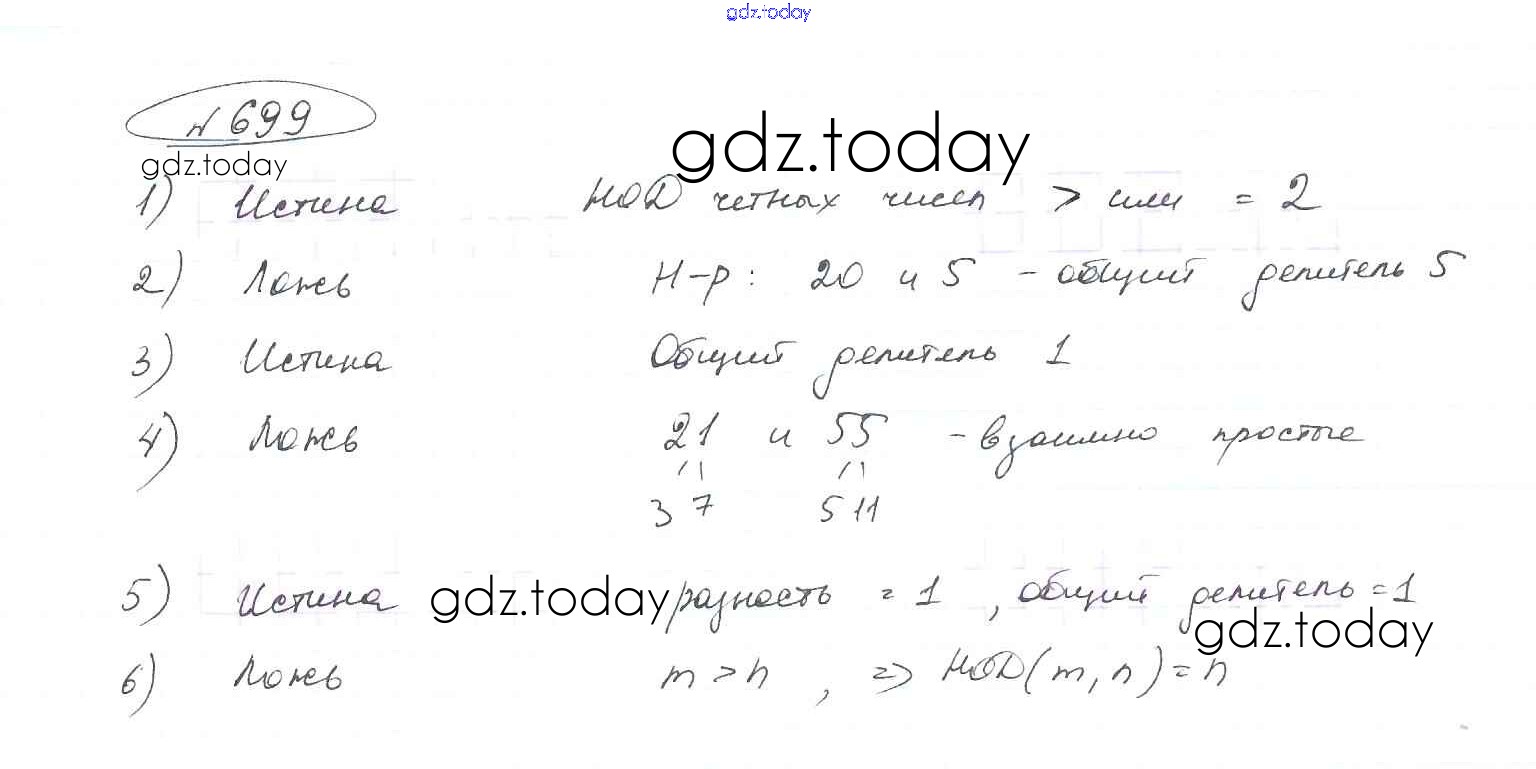 gdz.today
№ 699
gdz.today
gdz.today
1) Истина НОД четных чисел > или = 2
2) Ложь Н-р: 20 и 5 - общий делитель 5
3) Истина Общий делитель 1
4) Ложь 21 и 55 - взаимно простые
3 7 5 11
5) Истина gdz.today разность = 1, общий делитель = 1
gdz.today
6) Ложь m > n, => НОД(m, n) = n